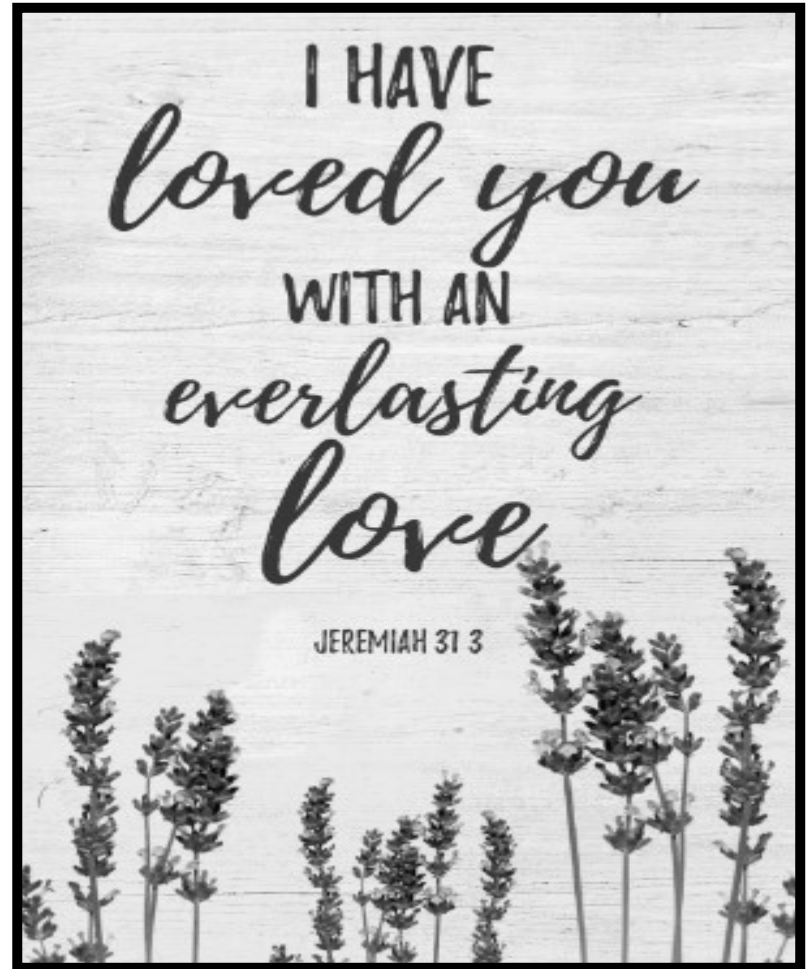 I HAVE
loved you
WITH AN
everlasting
love
JEREMIAH 31 3